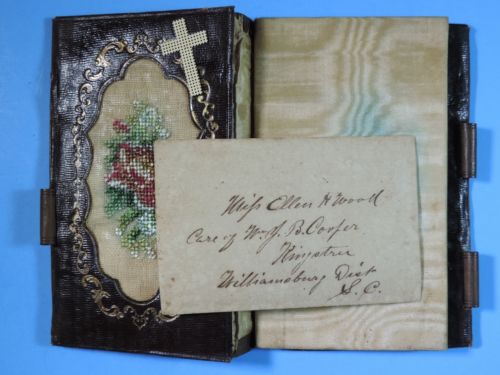 Miss Ellen H Wood
Care of Wm J. B. Cooper
Kingstree
Williamsburg Dist
S. C.